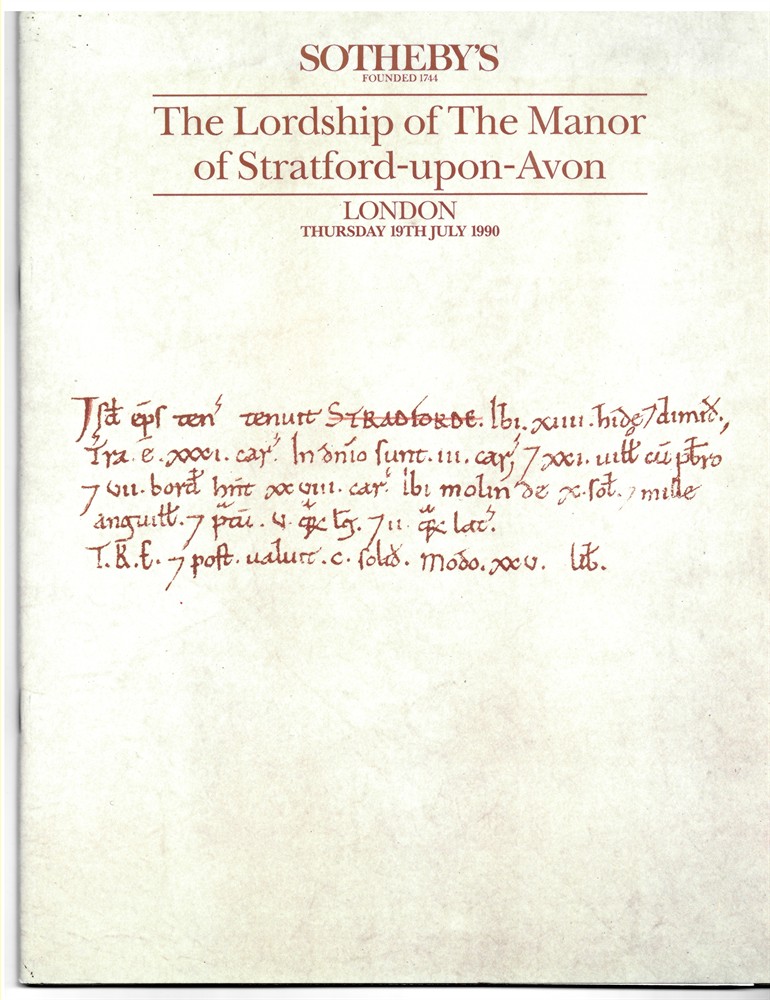 SOTHEBY'S
FOUNDED 1744
The Lordship of The Manor
of Stratford-upon-Avon
LONDON
THURSDAY 19TH JULY 1990
Isd̄ ep̄s ten⁊ tenuit STRADFORDE. Ibi. xiiii. hidę ⁊ dimid̄.,
T̄ra. ē. xxxi. car̄. In dn̄io sunt. iii. car̄, ⁊ xxi. uilt̄ cū pb̄ro
⁊ vii. bord̄ hn̄t xxviii. car̄. Ibi molin̄ de x. sol̄. ⁊ mille
anguilt̄. ⁊ p̄tū. v. qr̄ lḡ. ⁊ ii. qr̄ lat̄.
T.R.E. ⁊ post. ualuit. c. solid̄. Modo. xxv. lib̄.